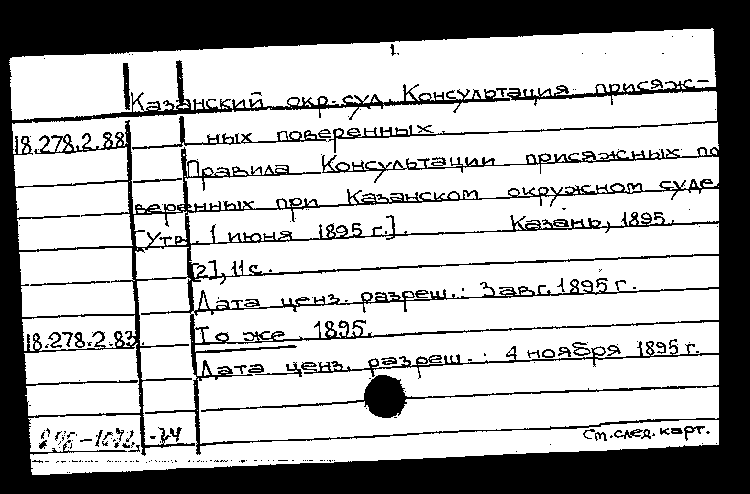 1.
Казанский окр. суд. Консультация присяж-
18.278.2.88 ных поверенных.
Правила Консультации присяжных по
веренных при Казанском окружном суде.
[Утв. 1 июня 1895 г.]. Казань, 1895.
[2], 11 с.
Дата ценз. разреш.: 3 авг. 1895 г.
18.278.2.83. То же. 1895.
Дата ценз. разреш.: 4 ноября 1895 г.
-74
Ст. след. карт.